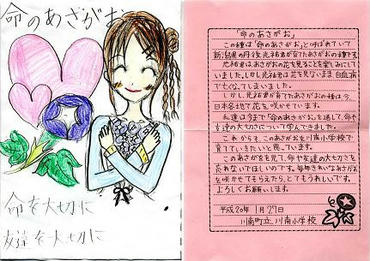 命のあさがお
命を大切に
友達を大切に
「命のあさがお」
この種は「命のあさがお」と呼ばれていて
新潟県の丹後光祐君が育てたあさがおの種です。
光祐君はあさがおの花を見ることを楽しみにして
いました。しかし光祐君は花を見ないまま白血病
で亡くなってしまいました。
しかし光祐君が育てたあさがおの種は、今
日本各地で花を咲かせています。
私達は今まで「命のあさがお」を通して、命や
友達の大切さについて学んできました。
これからも、このあさがおを川南小学校で
育てていきたいと思っています。
このあさがおを見て、命や友達の大切さを
忘れないでほしいのです。毎年きれいなあさがお
を咲かせてもらえたら、とてもうれしいです。
よろしくお願いします。
平成20年1月27日
川南町立川南小学校